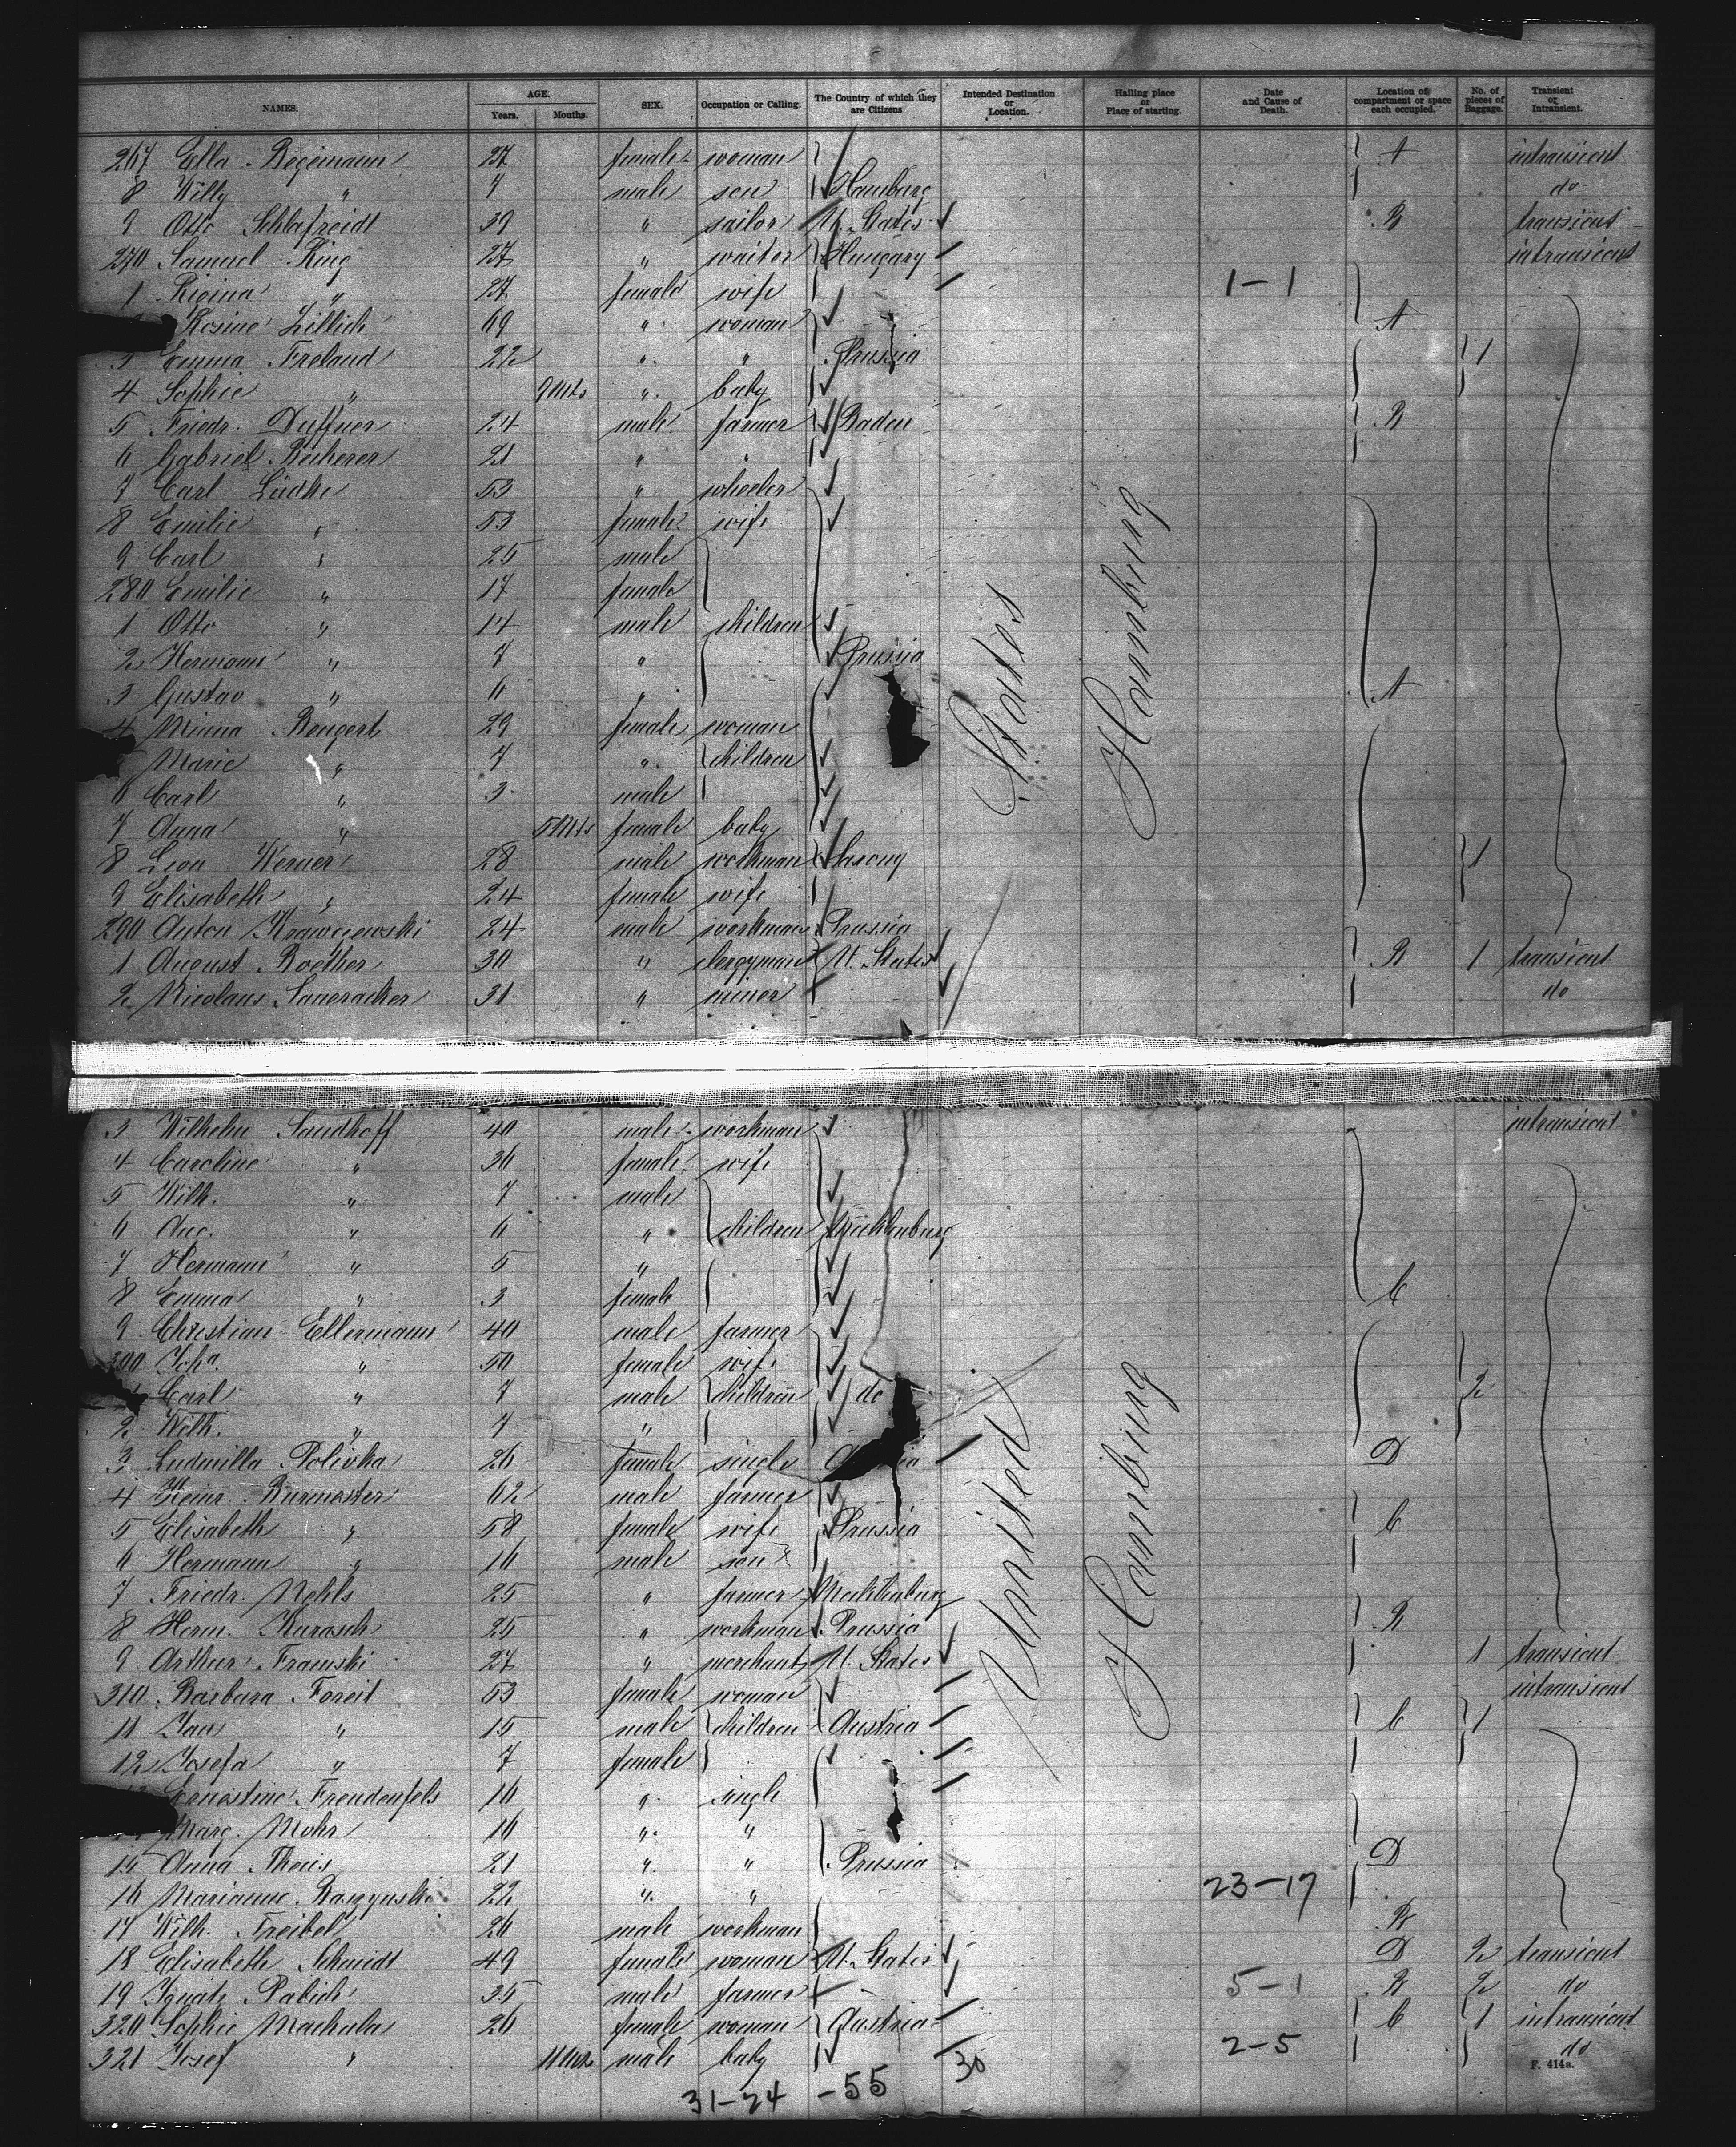 NAMES. AGE. Years. Months. SEX. Occupation or Calling. The Country of which they are Citizens Intended Destination or Location. Hailing place or Place of starting. Date and Cause of Death. Location of compartment or space each occupied. No. of pieces of Baggage. Transient or Intransient.
267 Ella Begemann 27 female woman A intransient
8 Willy " 7 male son Hamburg do
9 Otto Schlafreidt 39 " sailor U. States B transient
270 Samuel Ring 27 " waiter Hungary intransient
1 Regina " 27 female wife 1-1
Rosine Lillich 69 " woman A
3 Emma Freland 22 " " Prussia 1
4 Sophie " 9 Mts " baby
5 Friedr. Duffner 24 male farmer Baden B
6 Gabriel Becherer 21 " "
7 Carl Lüdke 53 " wheeler
8 Emilie " 53 female wife
9 Carl " 25 male
280 Emilie " 17 female
1 Otto " 14 male children
2 Hermann " 7 " Prussia
3 Gustav " 6 " A
4 Minna Bengert 29 female woman
Marie " 7 " children
6 Carl " 3 male
7 Anna " 5 Mts female baby
8 Leon Werner 28 male workman Saxony 1
9 Elisabeth " 24 female wife
290 Anton Krawczewski 24 male workman Prussia
1 August Roether 30 " clergyman U. States B 1 transient
2 Nicolaus Saueracker 31 " miner do
States
Hamburg
3 Wilhelm Sandhoff 40 male workman intransient
4 Caroline " 36 female wife
5 Wilh. " 7 male
6 Aug. " 6 " children Mecklenburg
7 Hermann " 5 "
8 Emma " 3 female C
9 Christian Ellermann 40 male farmer
300 Joha. " 50 female wife
Carl " 7 male children do 2
2 Wilh. " 7 "
3 Ludmilla Polivka 26 female single D
4 Heinr. Burmester 62 male farmer
5 Elisabeth " 58 female wife Prussia C
6 Hermann " 16 male son
7 Friedr. Nehls 25 " farmer Mecklenburg
8 Herm. Kurasch 25 " workman Prussia B
9 Arthur Framski 27 " merchant U. States 1 transient
310 Barbara Foreit 53 female woman intransient
11 Jan " 15 male children Austria C 1
12 Josefa " 7 female
Ernestine Freudenfels 16 " single
Marg. Mohr 16 " "
15 Anna Theis 21 " " Prussia D
16 Marianne Raszynski 22 " " 23-17
17 Wilh. Freibel 26 male workman B
18 Elisabeth Schmidt 49 female woman U. States D 2 transient
19 Ignatz Palich 35 male farmer 5-1 B 2 do
320 Sophie Machula 26 female woman Austria C 1 intransient
321 Josef " 11 Mts male baby 30 2-5 do
United
Hamburg
F. 414a.
31-24 -55